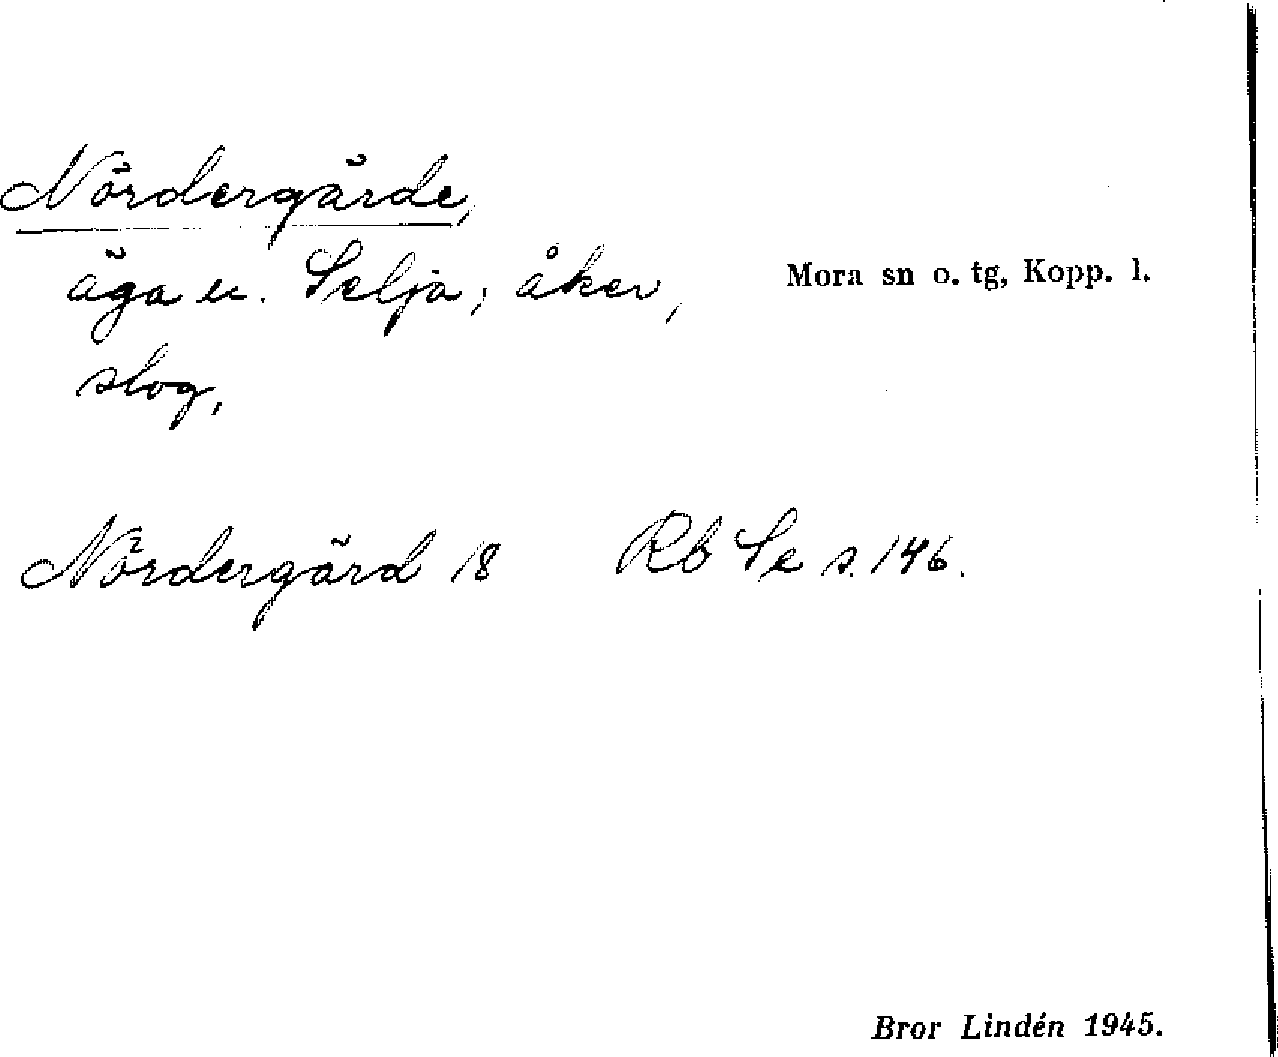 Nördergärde,
äga u. Selja; åker,
slog,
Mora sn o. tg, Kopp. l.
Nördergärd 18 Rb Se s. 146.
Bror Lindén 1945.